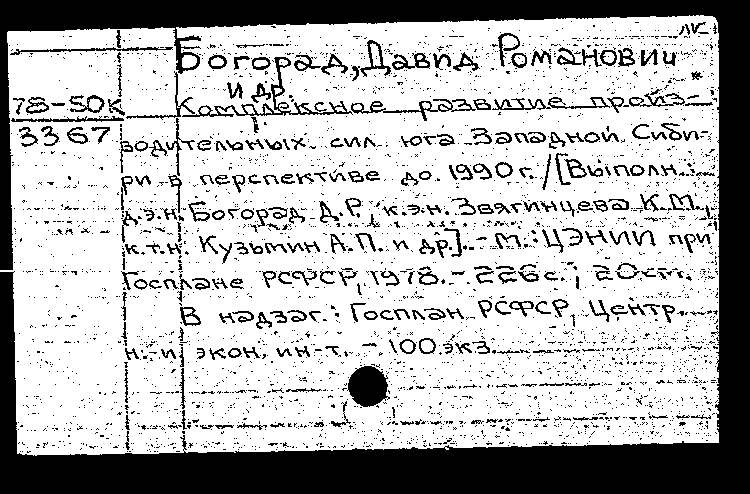 лс
Богорад, Давид Романович
и др.
78-50к Комплексное развитие произ-
3367 водительных сил юга Западной Сиби-
ри в перспективе до 1990 г. /[Выполн.:
д.э.н. Богорад Д.Р., к.э.н. Звягинцева К.М.,
к.т.н. Кузьмин А.П. и др]. - М.: ЦЭНИИ при
Госплане РСФСР, 1978. - 226 с.; 20 см.
В надзаг.: Госплан РСФСР, Центр.
н.-и. экон. ин-т. - 100 экз.